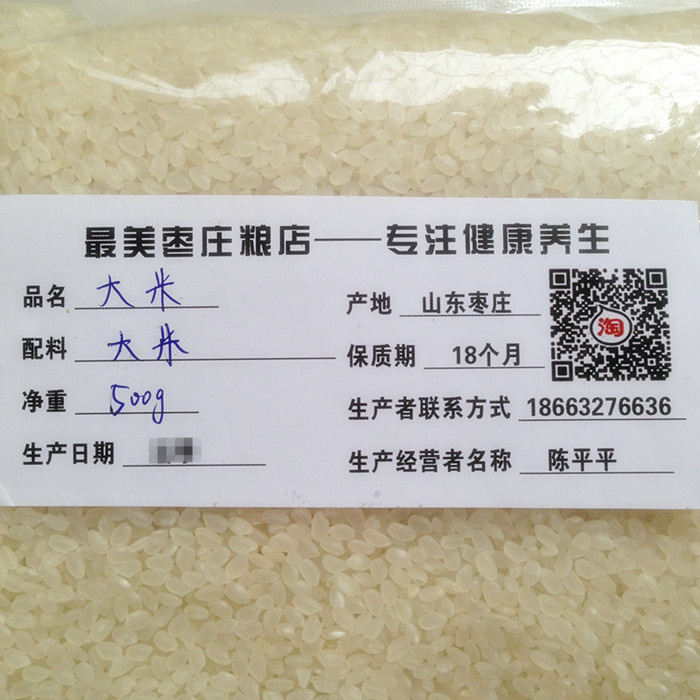 最美枣庄粮店——专注健康养生
品名 大米
配料 大米
净重 500g
生产日期
产地 山东枣庄
保质期 18个月
淘
生产者联系方式 18663276636
生产经营者名称 陈平平